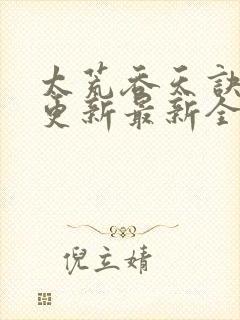 太荒吞天訣
更新最新全
倪立婧